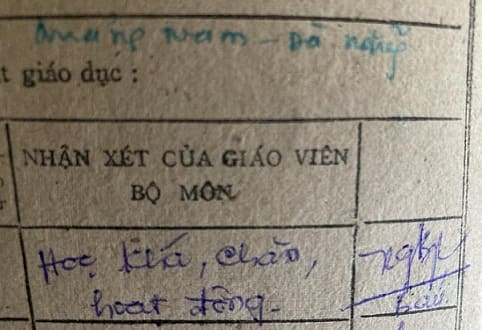 Quảng Nam - Đà Nẵng
t giáo dục :
NHẬN XÉT CỦA GIÁO VIÊN
BỘ MÔN
Học khá, chăm,
hoạt động.